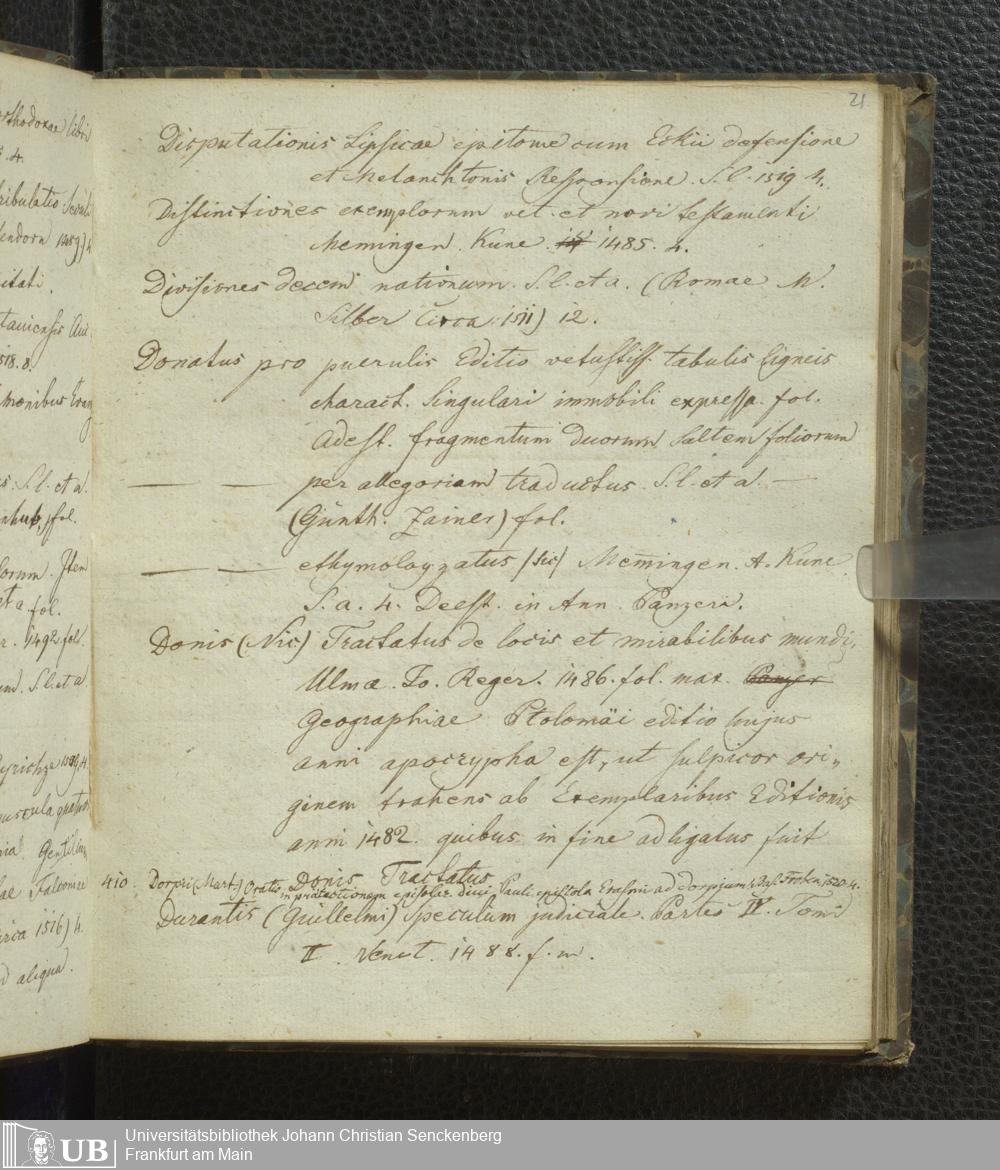 orthodoxae libri
s. 4.
tribulatio
endorn
itati.
taviensis
1518. 8.
monibus
s. S. l. et a.
fol.
lorum. Item
et a. fol.
r. 1492 fol.
um. S. l. et a
puscula
ria. Gentilium
ae Falconiae
irca 1516) 4.
d aliqua.
21
Disputationis Lipsicae epitome cum Eckii defensione
et Melanchtonis Responsione. S. l. 1519 4.
Distinctiones exemplorum vet. et novi testamenti
Memingen. Kune. 1485. 4.
Divisiones decem nationum. S. l. et a. (Romae M.
Silber Circa 1511) 12.
Donatus pro puerulis Editio vetustiss. tabulis ligneis
charact. singulari immobili expressa. fol.
Adest. fragmentum duorum saltem foliorum
— — per allegoriam traductus. S. l. et a. —
(Günth. Zainer) fol.
— — ethymologyzatus /sic/ Mem̄ingen. A. Kune
S. a. 4. Deest. in Ann. Panzeri.
Donis (Nic) Tractatus de locis et mirabilibus mundi,
Ulmae. Jo. Reger. 1486. fol. max. Panzer
Geographiae Ptolomäi editio hujus
anni apocrypha est, ut suspicor ori„
ginem trahens ab Exemplaribus Editionis
anni 1482. quibus in fine adligatus fuit
Donis Tractatus
410. Dorpii (Mart.) Oratio in praelectionem epistolar. divi Pauli. epistola Erasmi ad Dorpium Bas. Froben. 1520. 4.
Durantis (Guillelmi) Speculum judiciale. Partes IV. Tomi
II. Venet. 1488. f. m.
UB
Universitätsbibliothek Johann Christian Senckenberg
Frankfurt am Main